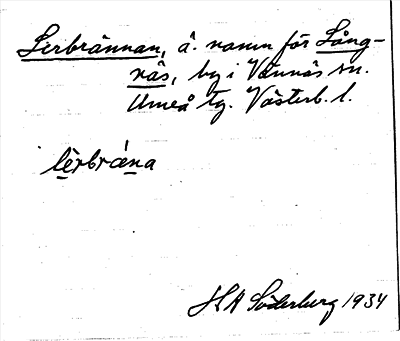 Lerbrännan, ä. namn för Lång-
näs, by i Vännäs sn.
Umeå tg. Västerb. l.
lèrbrána
HA Söderburg 1934